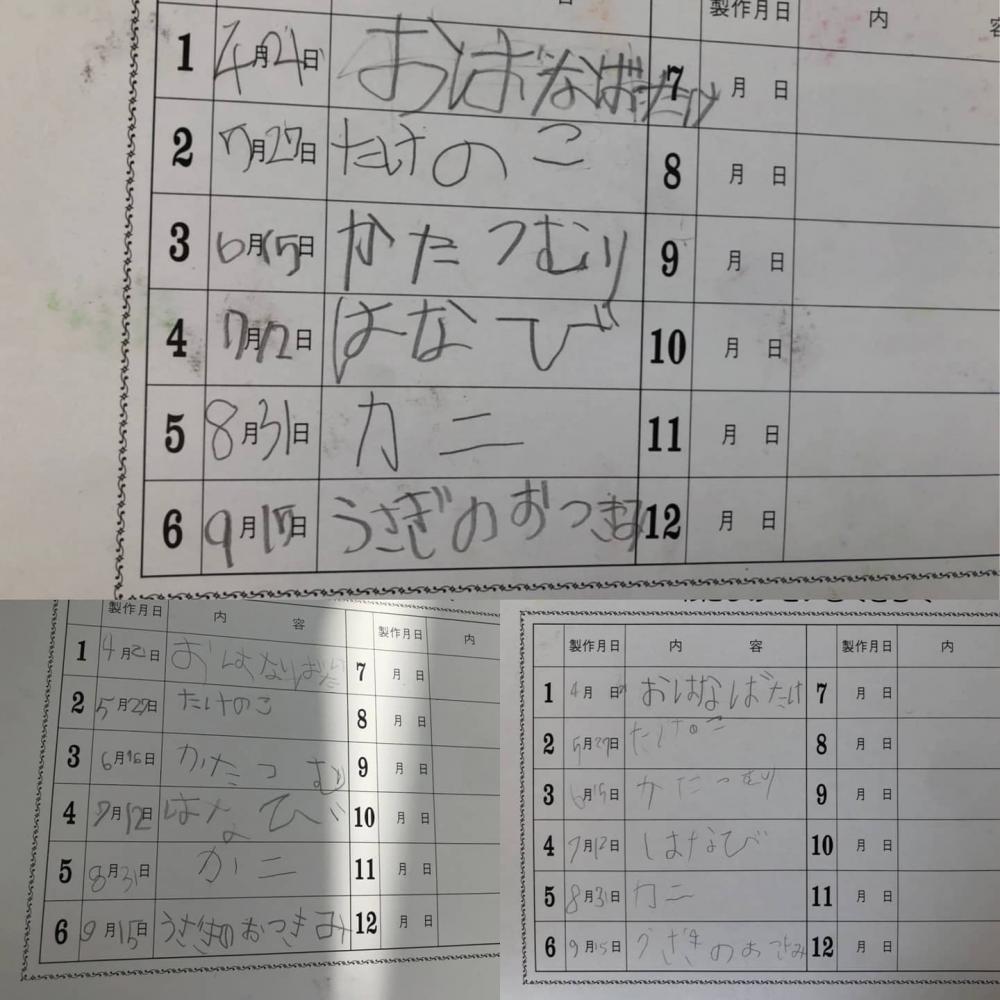 製作月日 内 容
1 4月21日 おはなばたけ 7 月 日
2 5月27日 たけのこ 8 月 日
3 6月15日 かたつむり 9 月 日
4 7月12日 はなび 10 月 日
5 8月31日 カニ 11 月 日
6 9月15日 うさぎのおつきみ 12 月 日
製作月日 内 容 製作月日 内
1 4月21日 おはなばた 7 月 日
2 5月27日 たけのこ 8 月 日
3 6月16日 かたつむり 9 月 日
4 7月12日 はなび 10 月 日
5 8月31日 カニ 11 月 日
6 9月15日 うさぎのおつきみ 12 月 日
製作月日 内 容 製作月日 内
1 4月 日 おはなばたけ 7 月 日
2 5月27日 たけのこ 8 月 日
3 6月15日 かたつむり 9 月 日
4 7月12日 はなび 10 月 日
5 8月31日 カニ 11 月 日
6 9月15日 うさぎのおつきみ 12 月 日